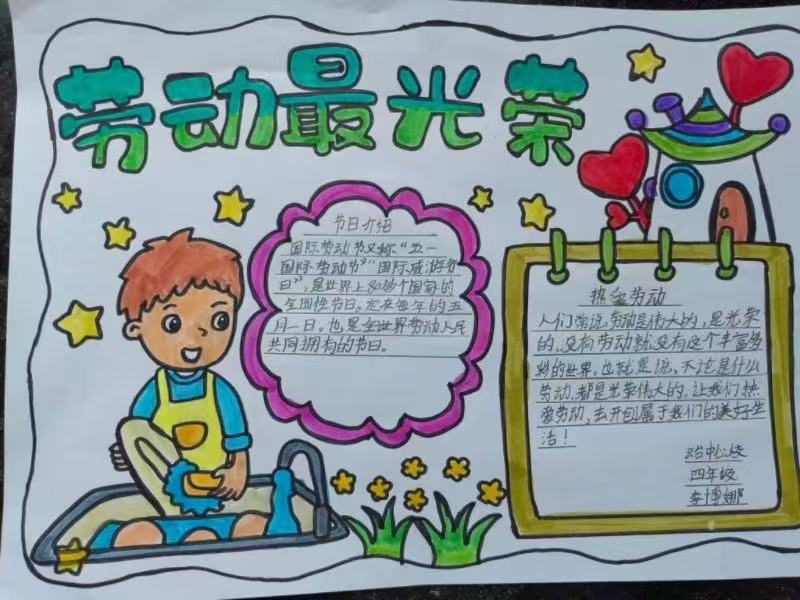 劳动最光荣
节日介绍
国际劳动节又称“五一
国际劳动节”“国际
日”，是世界上80多个国家的
全国性节日。定在每年的五
月一日。也是全世界劳动人民
共同拥有的节日。
热爱劳动
人们常说，劳动是伟大的，是光荣
的，没有劳动就没有这个丰富多
彩的世界。也就是说，不论是什么
劳动，都是光荣伟大的，让我们热
爱劳动，去开包属于我们的美好生
活！
中心校
四年级
李博娜